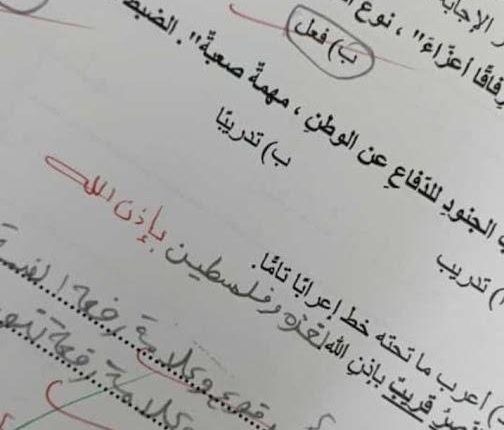 ر الإجابة
رفاقًا أعزّاءَ" ، نوع
ب) فعل
ب الجنودِ للدّفاعِ عن الوطنِ ، مهمةٌ صعبةٌ" . الضبط
) تدريب
ب) تدريبًا
) أعرب ما تحته خط إعرابًا تامًا.
نصرُ قريبٌ بإذن الله لغزه وفلسطين بإذن الله
مرفوع وعلامة رفعه الضمة
وعلامة رفعه